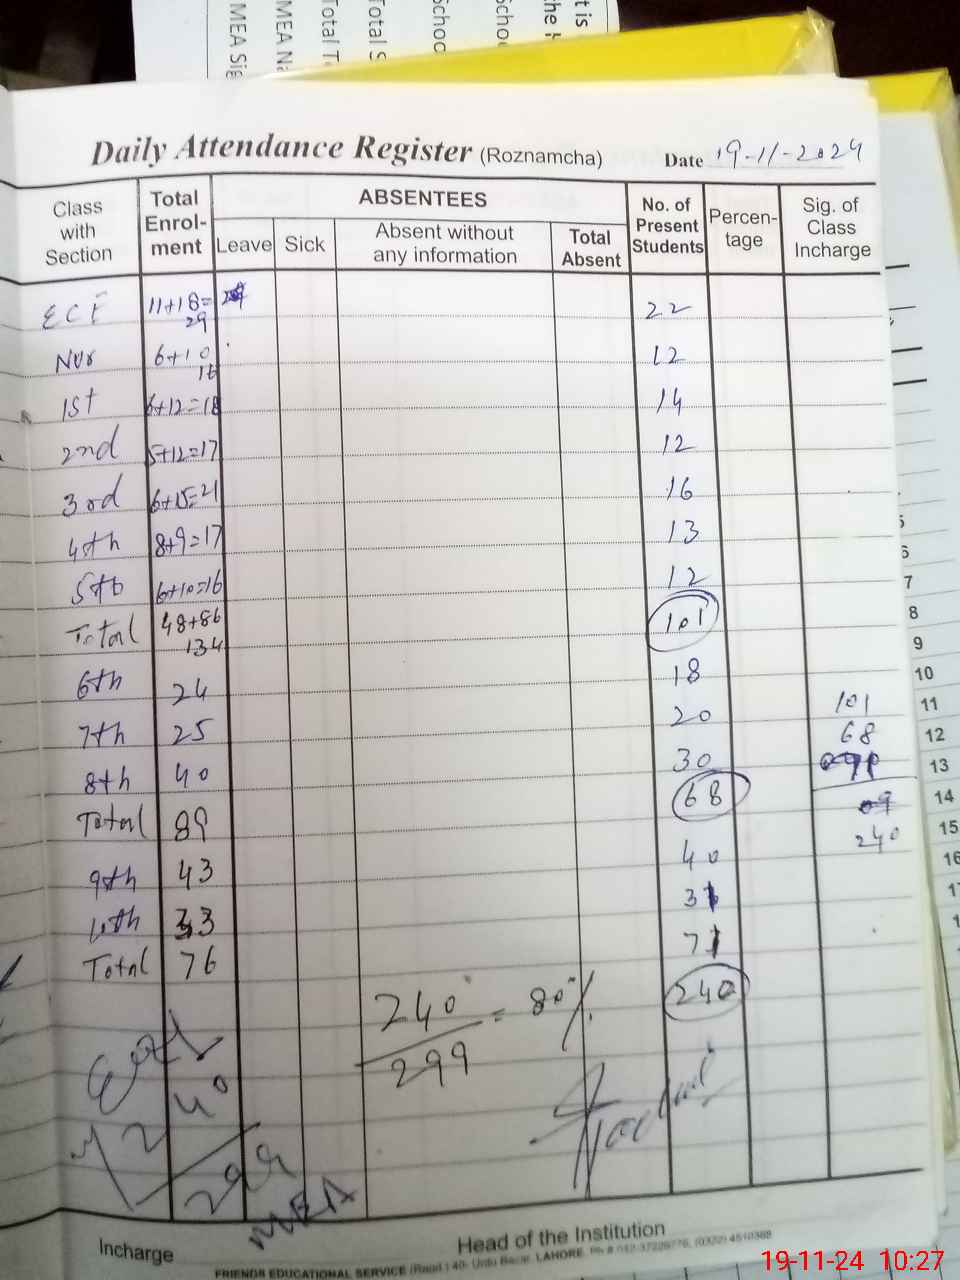 t is
he H
Schoo
Schoc
Total S
Total T
MEA Na
MEA Sig
Daily Attendance Register (Roznamcha) Date 19-11-2024
Class with Section Total Enrol-ment ABSENTEES No. of Present Students Percen-tage Sig. of Class Incharge
Leave Sick Absent without any information Total Absent
ECE 11+18= 22
29
Nur 6+10 12
16
1st 6+12=18 14
2nd 5+12=17 12
3rd 6+15=21 16
4th 8+9=17 13
5th 6+10=16 12
Total 48+86 101
134
6th 24 18
7th 25 20
8th 40 30
Total 89 68
9th 43 40
10th 33 31
Total 76 71
240
101
68
240
240 = 80%
299
240
299
MEA
5
6
7
8
9
10
11
12
13
14
15
16
Incharge Head of the Institution
FRIENDS EDUCATIONAL SERVICE LAHORE
19-11-24 10:27